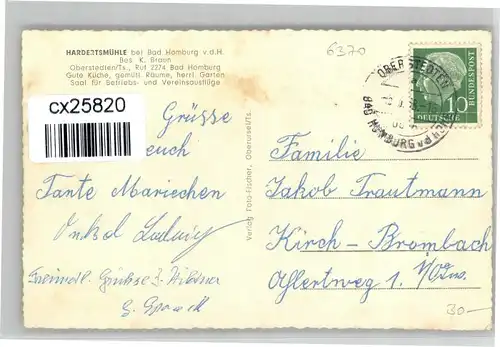 HARDERTSMÜHLE bei Bad Homburg v.d.H.
Bes K. Braun
Oberstedten/Ts., Ruf 2274 Bad Homburg
Gute Küche, gemütl Räume, herrl Garten
Saal für Betriebs- und Vereinsausflüge
6370
OBERSTEDTEN
BAD HOMBURG v d
10
DEUTSCHE
BUNDESPOST
cx25820
Grüsse
euch
Tante Mariechen
Onkel Ludwig
Freundl. Grüsse
Verlag Foto-Fischer, Oberursel/Ts.
Familie
Jakob Trautmann
Kirch-Brombach
1 /Odw.
30-